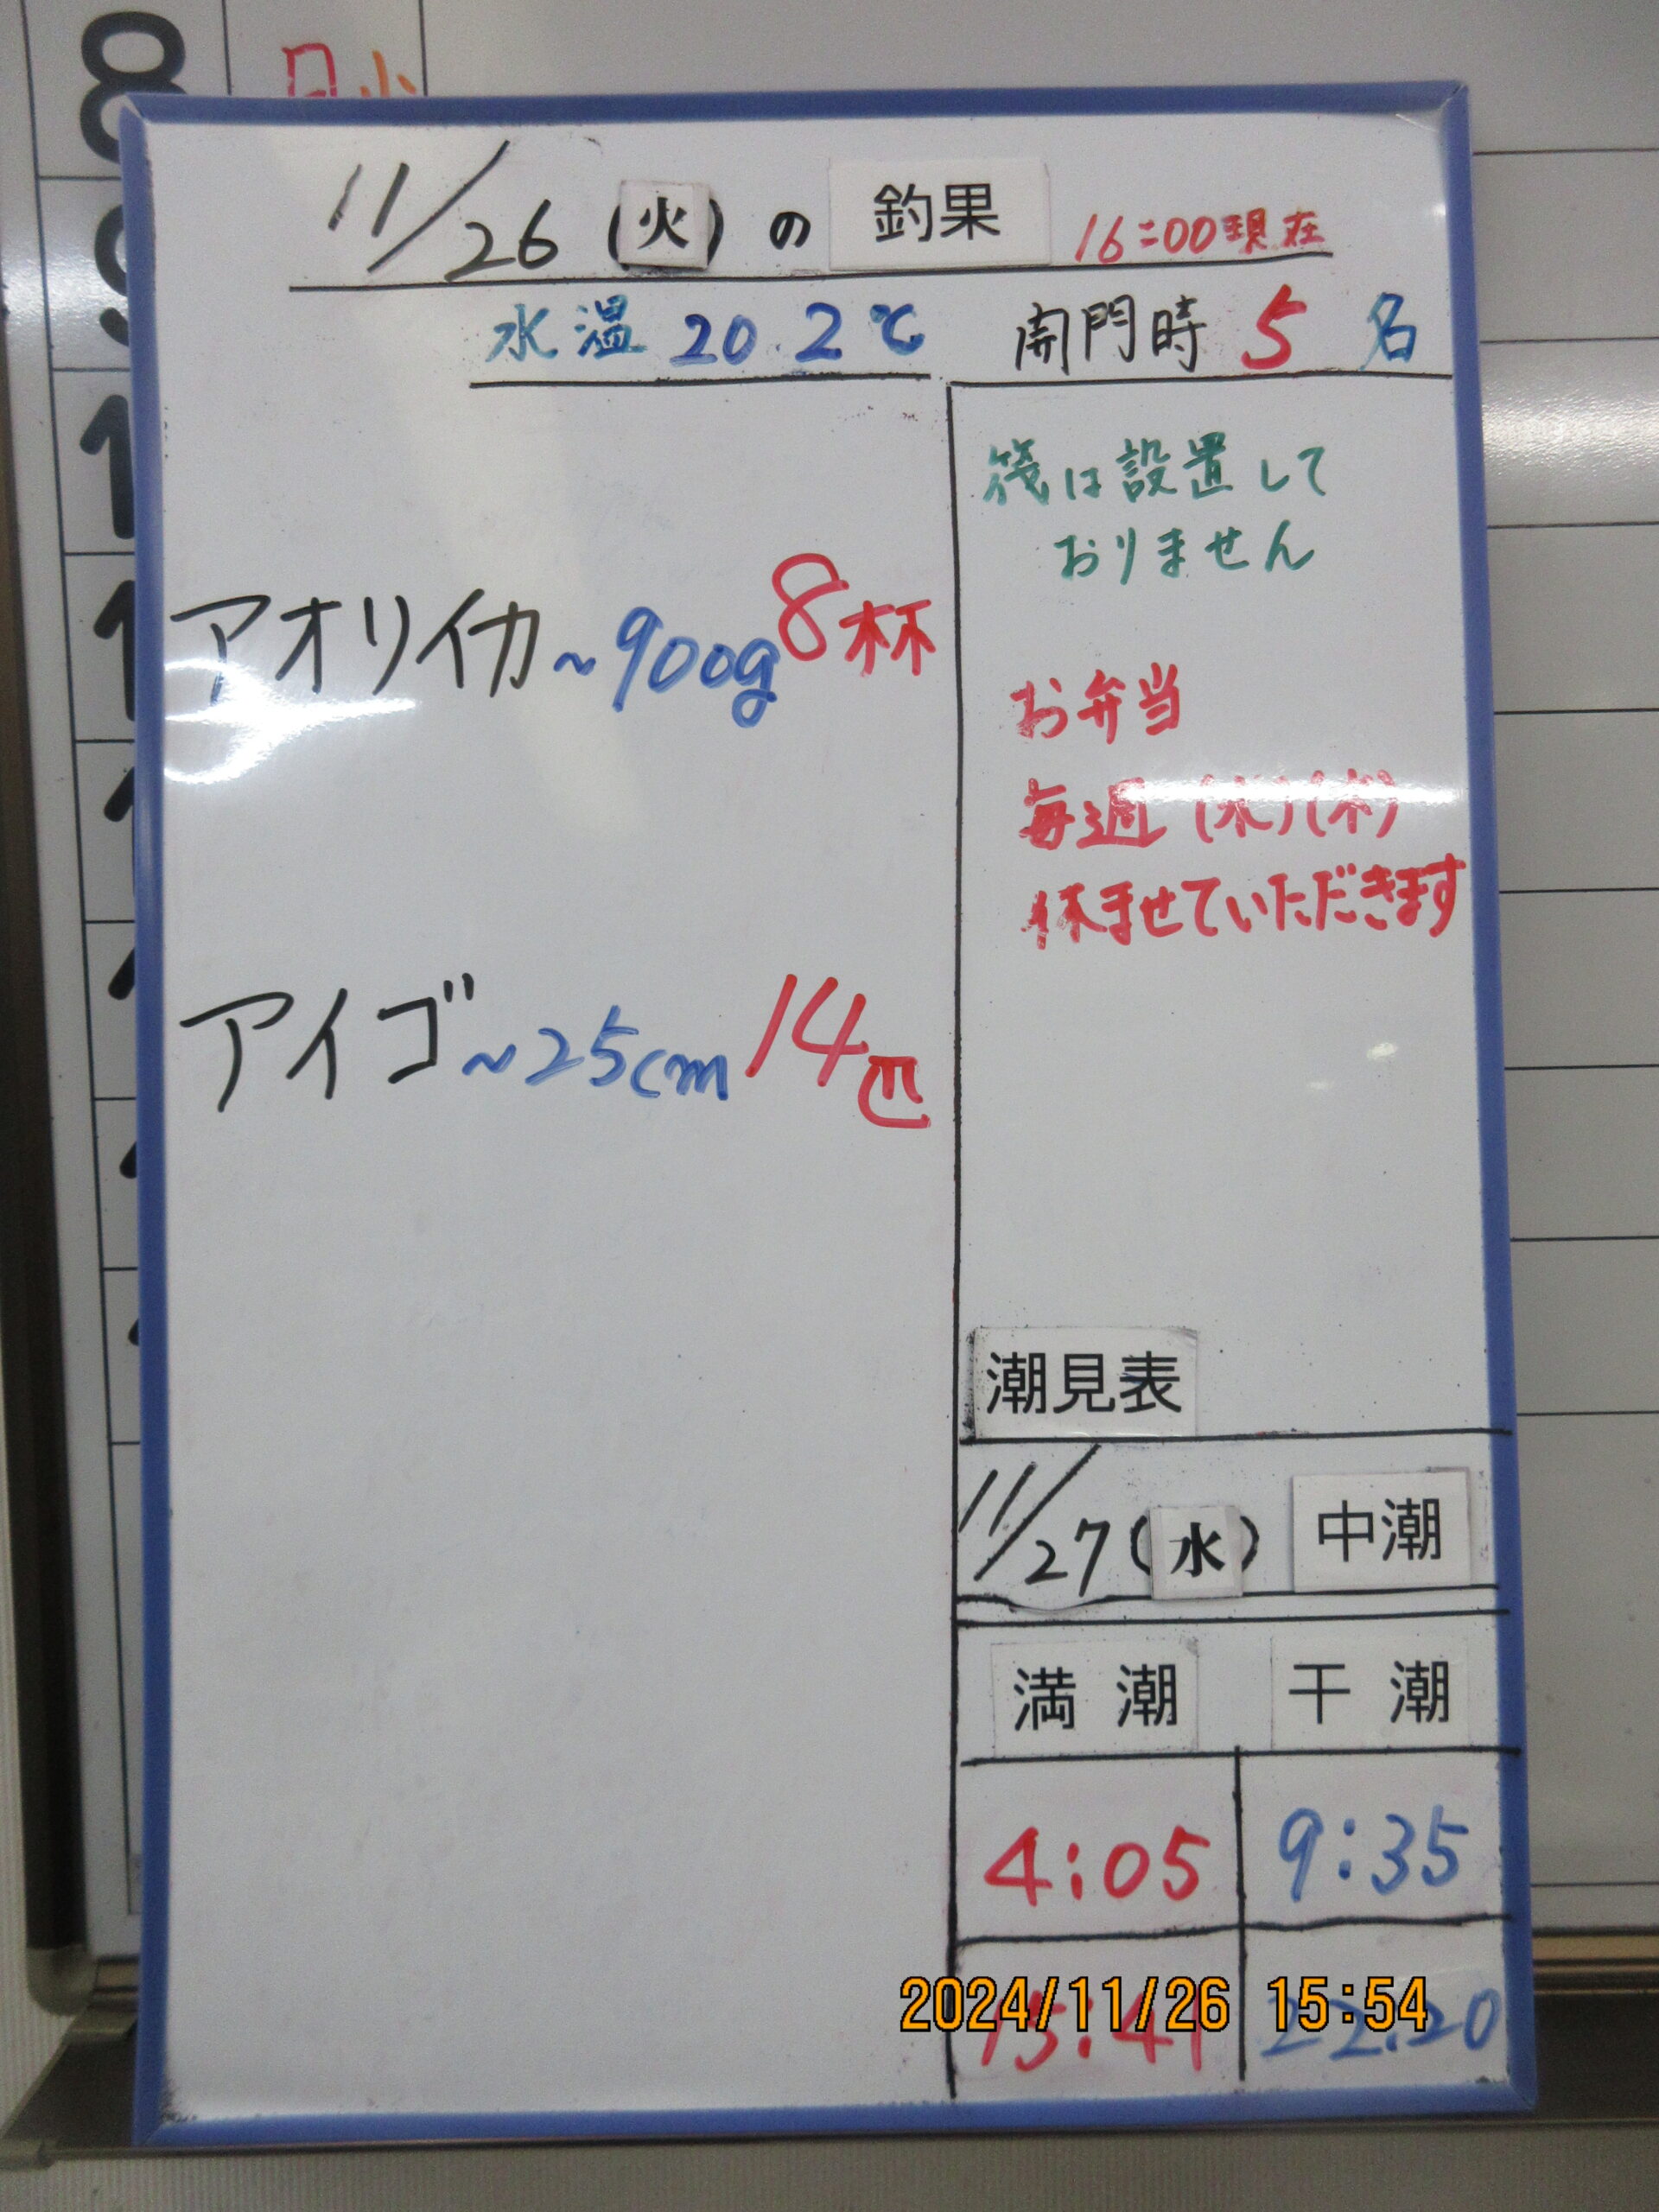 8
11/26（火）の 釣果 16:00現在
水温 20 2℃ 開門時 5 名
筏は設置して
おりません
アオリイカ~900g8杯
お弁当
毎週（水）（木）
休ませていただきます
アイゴ~25cm14匹
潮見表
11/27（水） 中潮
満潮 干潮
4:05 9:35
15:41 22:20
2024/11/26 15:54